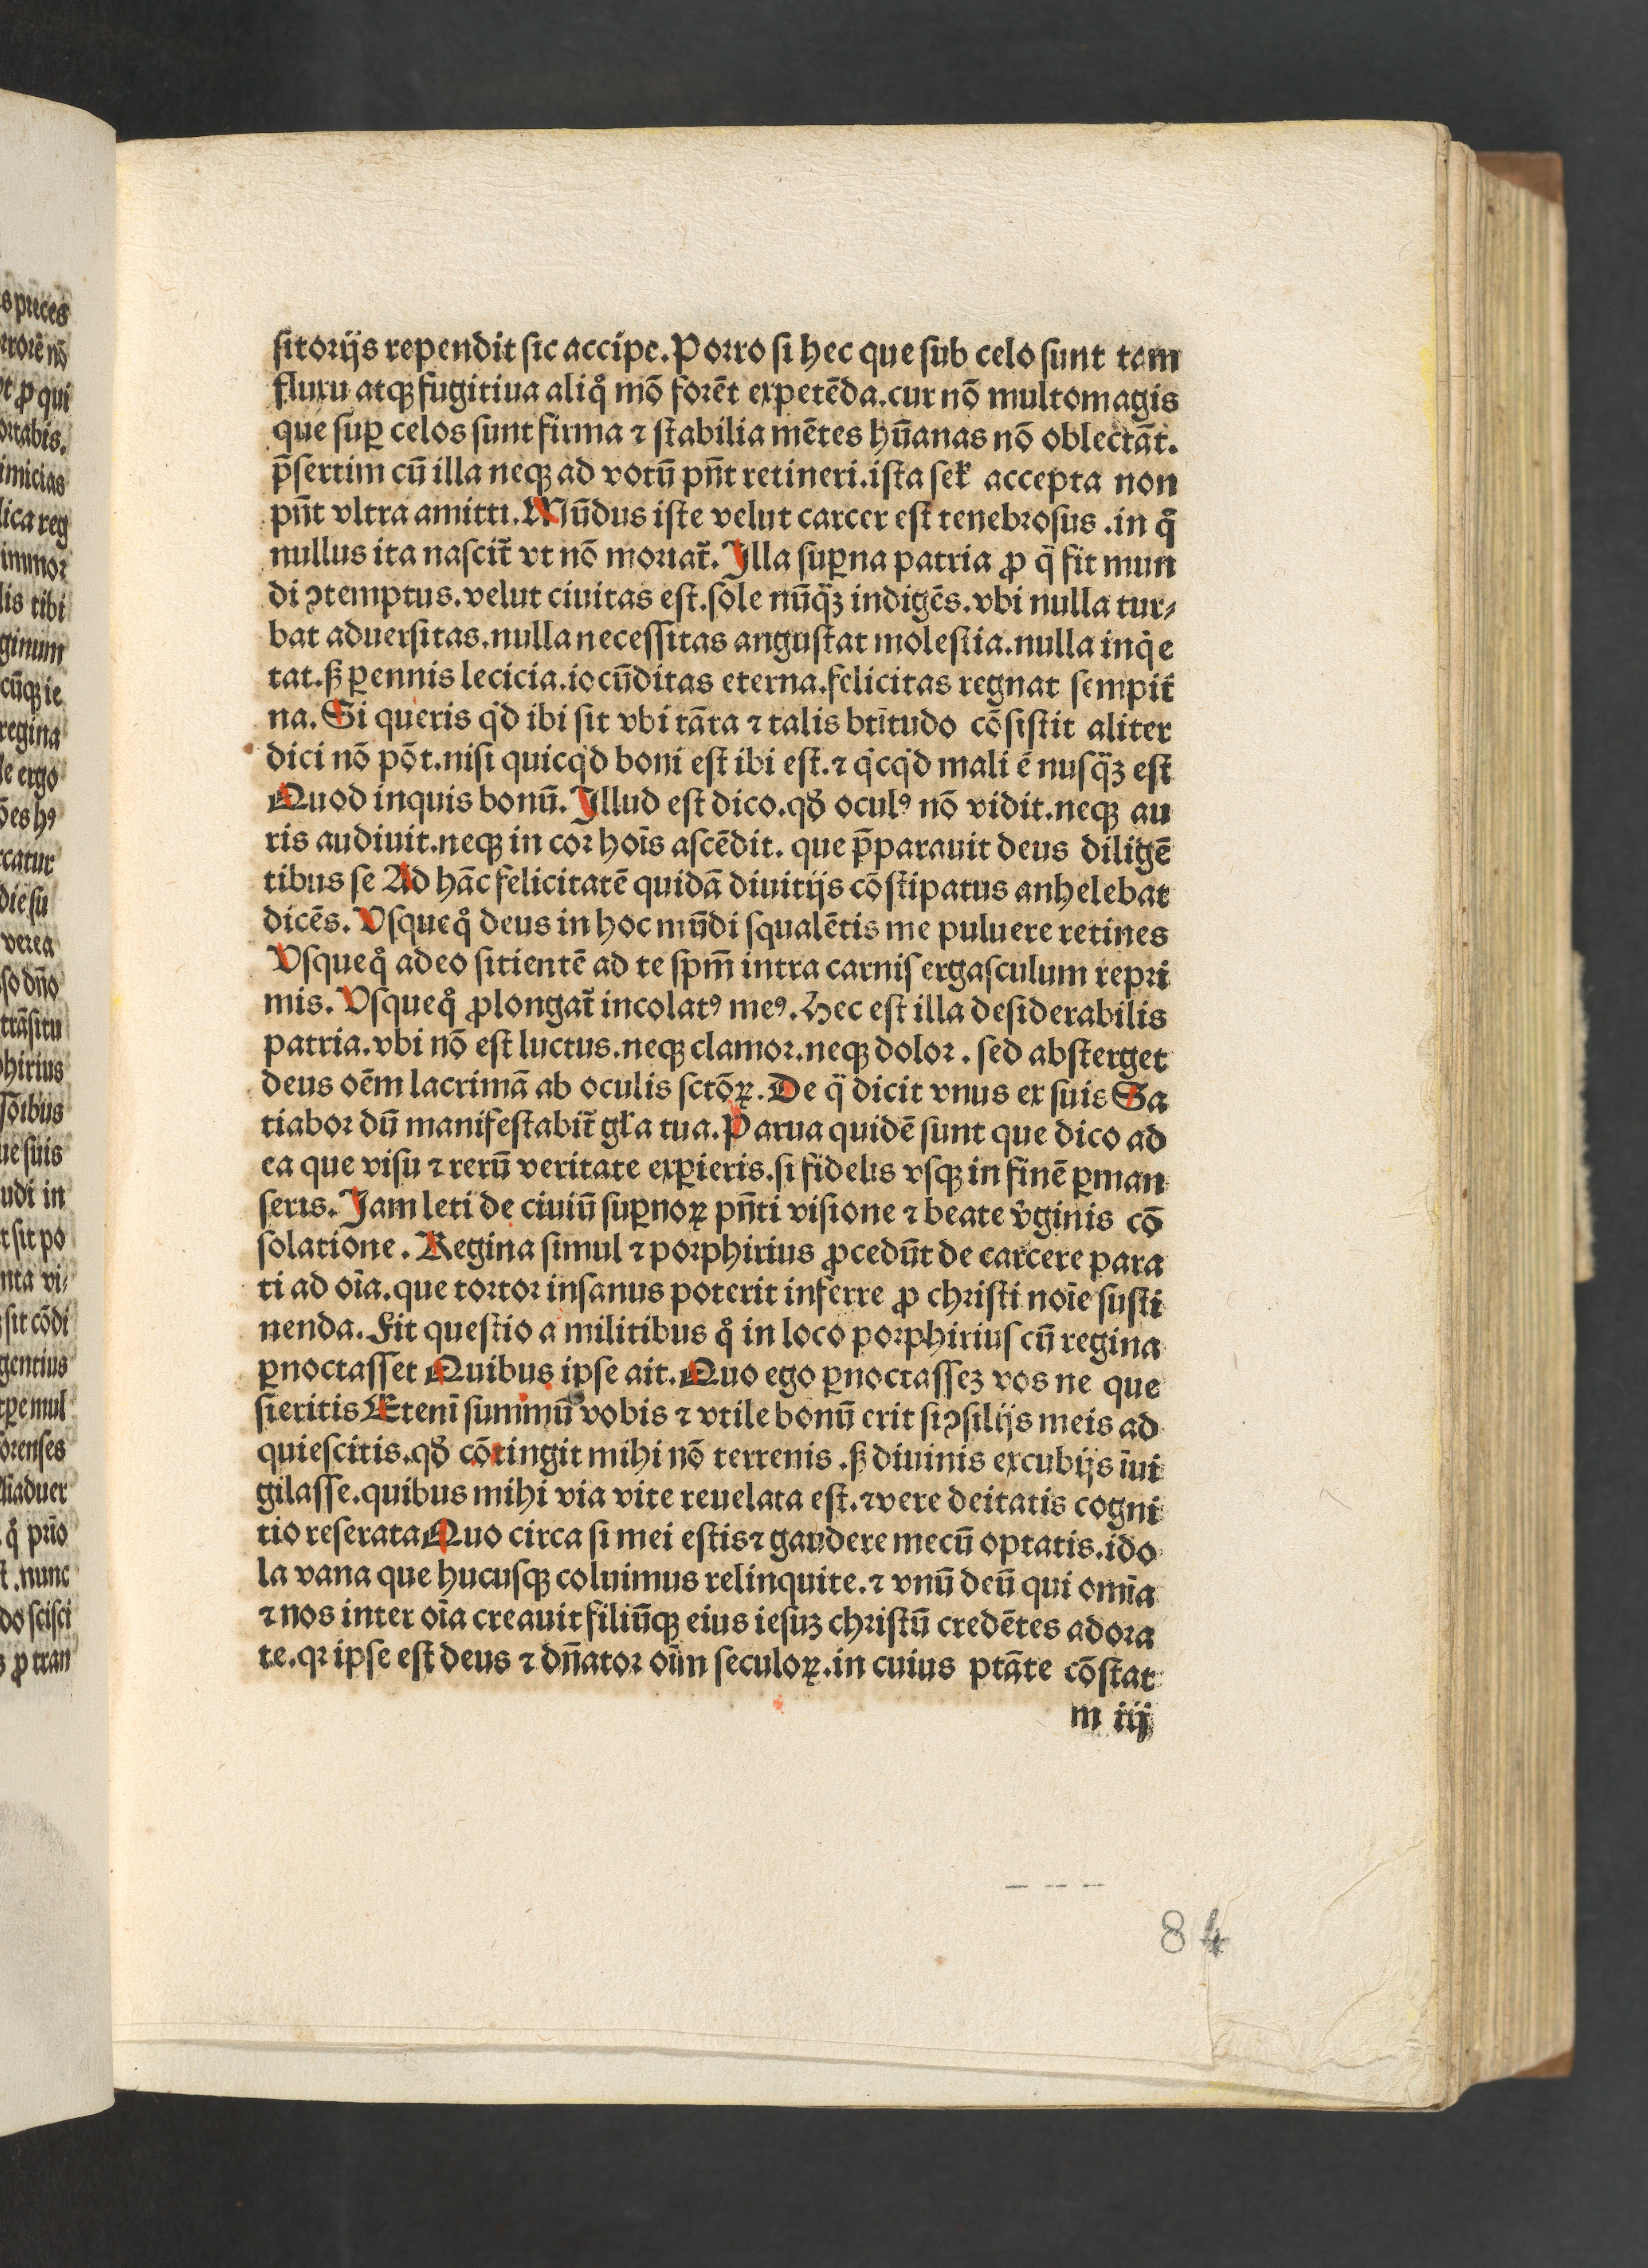 sitorijs rependit sic accipe. Porro si hec que sub celo sunt tam
fluxu atqꝫ fugitiua aliqͦ mō forēt expetēda. cur nō multomagis
que suꝑ celos sunt firma ⁊ stabilia mētes hūanas nō oblectāt.
p̄sertim cū illa neqꝫ ad votū pn̄t retineri. ista sel̛ accepta non
pn̄t vltra amitti. Mūdus iste velut carcer est tenebrosus . in qͦ
nullus ita nascit᷑ vt nō moriat᷑. Illa suꝑna patria ꝓ qᷓ fit mun
di ꝯtemptus. velut ciuitas est. sole nūqᷓꝫ indigēs. vbi nulla tur⸗
bat aduersitas. nulla necessitas angustat molestia. nulla inqͥe
tat. sꝫ ꝑennis leticia. iocūditas eterna. felicitas regnat sempit᷑
na. Si queris qͥd ibi sit vbi tāta ⁊ talis btītudo cōsistit aliter
dici nō pōt. nisi quicqͥd boni est ibi est. ⁊ qͥcqͥd mali ē nusqᷓꝫ est
Quod inquis bonū. Illud est dico. qđ oculꝰ nō vidit. neqꝫ au
ris audiuit. neqꝫ in cor hoīs ascēdit. que p̄parauit deus diligē
tibus se Ad hāc felicitatē quidā diuitijs cōstipatus anhelebat
dicēs. Vsquequͦ deus in hoc mūdi squalētis me puluere retines
Vsqueqͦ adeo sitientē ad te spm̄ intra carnis ergasculum repri
mis. Vsqueqͦ ꝓlongat᷑ incolatꝰ meꝰ. Hec est illa desiderabilis
patria. vbi nō est luctus. neqꝫ clamor. neqꝫ dolor . sed absterget
deus oēm lacrimā ab oculis sctōꝝ. De qᷓ dicit vnus ex suis Sa
tiabor dū manifestabit᷑ gl̛a tua. Parua quidē sunt que dico ad
ea que visu ⁊ rerū veritate exꝑieris. si fidelis vsqꝫ in finē ꝑman
seris. Jam leti de ciuiū suꝑnoꝝ pn̄ti visione ⁊ beate v̾ginis cō
solatione . Regina simul ⁊ porphirius ꝓcedūt de carcere para
ti ad oīa. que tortor insanus poterit inferre ꝓ christi noīe susti
nenda. Fit questio a militibus qͦ in loco porphirius cū regina
ꝑnoctasset Quibus ipse ait. Quo ego ꝑnoctasseꝫ vos ne que
sieritis Etenī summū vobis ⁊ vtile bonū erit si ꝯsilijs meis ad
quiescitis. qđ cōtingit mihi nō terrenis . sꝫ diuinis excubijs īui
gilasse. quibus mihi via vite reuelata est. ⁊ vere deitatis cogni
tio reserata Quo circa si mei estis ⁊ gaudere mecū optatis. ido
la vana que hucusqꝫ coluimus relinquite. ⁊ vnū deū qui omīa
⁊ nos inter oīa creauit filiūqꝫ eius iesuꝫ christū credētes adora
te. qꝛ ipse est deus ⁊ dn̄ator oīm seculoꝝ. in cuius ptāte cōstat
m iij
84